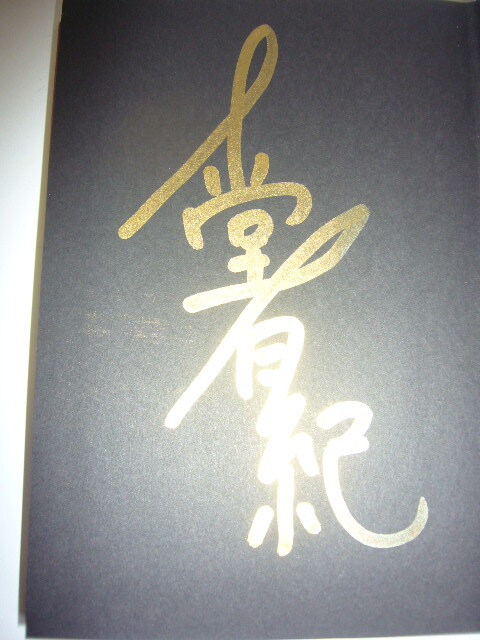 堂有紀